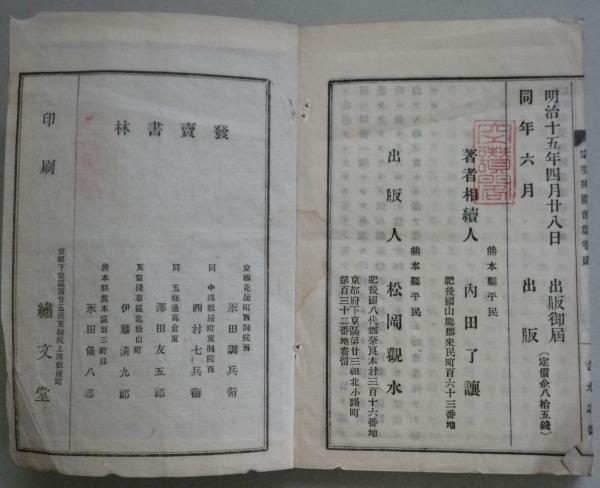 明治十五年四月廿八日 出版御屆
(定價金八拾五錢)
同年六月 出版
熊本縣平民
著者相續人 內田了讓
肥後國山鹿郡來民町百六十三番地
熊本縣平民
出版人 松岡觀水
肥後國八代郡奈良木村三百十六番地
京都府下京區第廿三組北小路町
第百三十二番地寄留
發賣書林
京都花屋町西洞院西
永田調兵衛
同 中珠數屋町東洞院西
西村七兵衛
同 五條通高倉東
澤田友五郎
東京淺草區北松山町
伊藤淸九郎
熊本縣熊本區新三町目
永田儀八郎
印刷
京都下京區第廿五組東洞院上珠數屋町
繡文堂